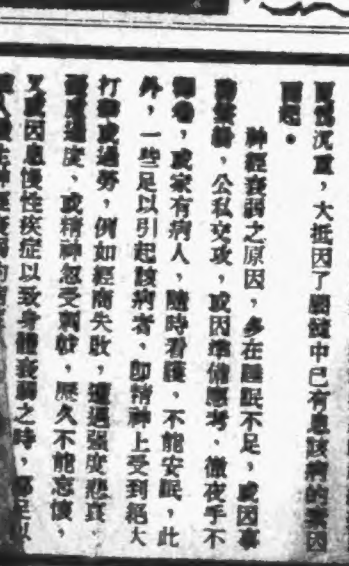 而愈沉重，大抵因了關體中已有患該病的素因
而起。
神經衰弱之原因，多在睡眠不足，或因事
務紛，公私交攻，或因準備應考，徹夜手不
釋卷，或家有病人，隨時看護，不能安眠，此
外，一些足以引起該病者，即精神上受到絕大
打擊或過勞，例如經商失敗，遭遇强度悲哀，
過度，或精神忽受刺戟，歷久不能忘懷，
又或因患慢性疾症以致身體衰弱之時，都足以
人發生神經衰弱的